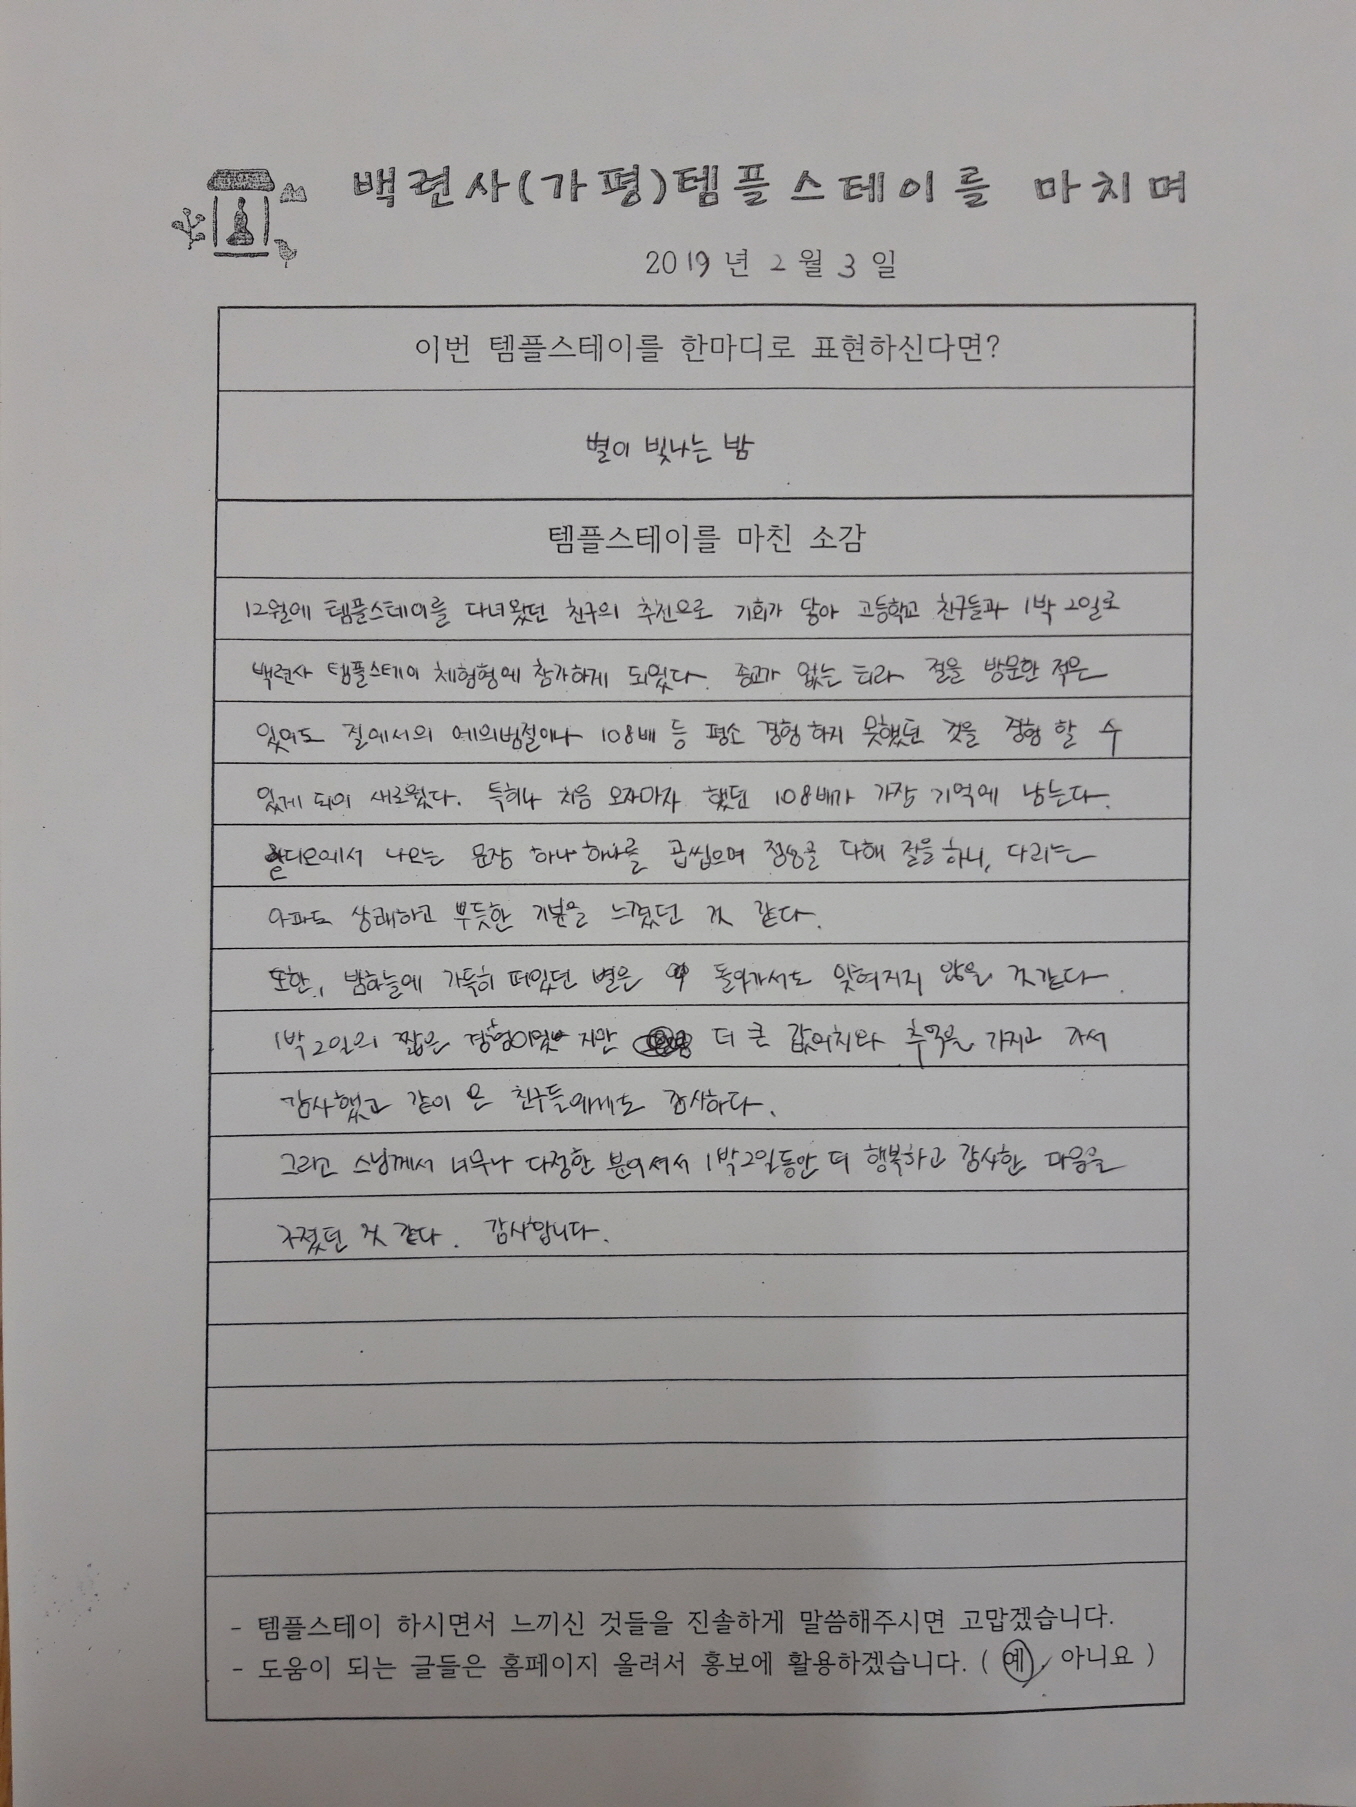 백련사(가평)템플스테이를 마치며
2019년 2월 3일
이번 템플스테이를 한마디로 표현하신다면?
별이 빛나는 밤
템플스테이를 마친 소감
12월에 템플스테이를 다녀왔던 친구의 추천으로 기회가 닿아 고등학교 친구들과 1박 2일로
백련사 템플스테이 체험형에 참가하게 되었다. 종교가 없는 터라 절을 방문한 적은
있어도 절에서의 예의범절이나 108배 등 평소 경험하지 못했던 것을 경험 할 수
있게 되어 새로웠다. 특히나 처음 오자마자 했던 108배가 가장 기억에 남는다.
오디오에서 나오는 문장 하나하나를 곱씹으며 정성을 다해 절을 하니, 다리는
아파도 상쾌하고 뿌듯한 기분을 느꼈던 것 같다.
또한, 밤하늘에 가득히 떠있던 별은 돌아가서도 잊혀지지 않을 것 같다.
1박 2일의 짧은 경험이었지만 더 큰 값어치와 추억을 가지고 가서
감사했고 같이 온 친구들에게도 감사하다.
그리고 스님께서 너무나 다정한 분이셔서 1박2일동안 더 행복하고 감사한 마음을
가졌던 것 같다. 감사합니다.
- 템플스테이 하시면서 느끼신 것들을 진솔하게 말씀해주시면 고맙겠습니다.
- 도움이 되는 글들은 홈페이지 올려서 홍보에 활용하겠습니다. ( 예, 아니요 )